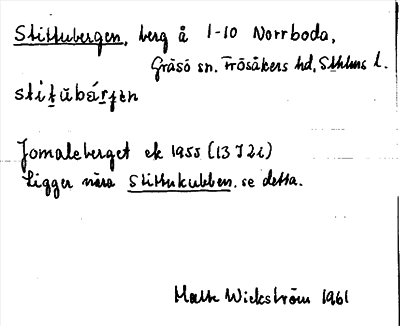 Stittubergen, berg å 1-10 Norrboda,
Gräsö sn, Frösåkers hd, Sthlms l.
stit̠ŭbǽr̠jen
Jomaleberget ek 1955 (13 I 2i)
Ligger nära Stittukubben, se detta.
Malte Wickström 1961